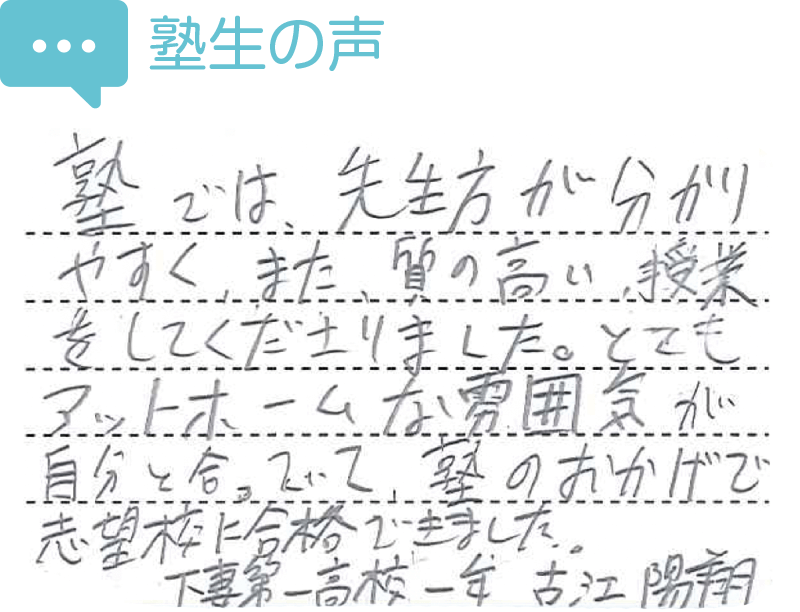 塾生の声
塾では、先生方が分かり
やすく、また、質の高い、授業
をしてくださりました。とても
アットホームな雰囲気が
自分と合っていて、塾のおかげで
志望校に合格できました。
下妻第一高校一年 古江 陽翔